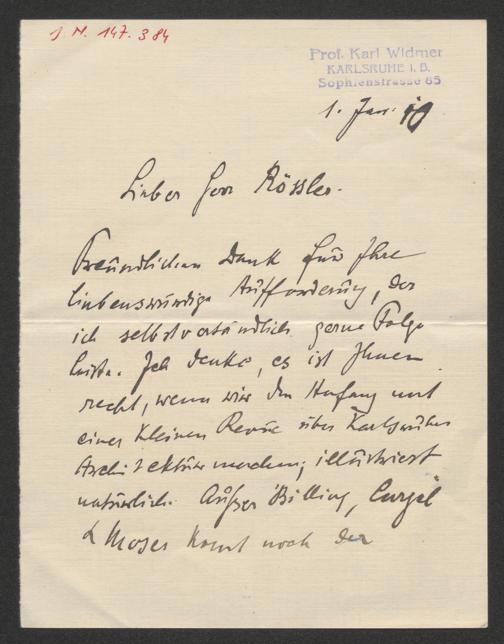 J. N. 147.384
Prof. Karl Widmer
KARLSRUHE i. B.
Sophienstrasse 65
1. Jan. 10
Lieber Herr Rössler.
Freundlichen Dank für Ihre
liebenswürdige Aufforderung, der
ich selbstverständlich gerne Folge
leiste. Ich denke, es ist Ihnen
recht, wenn wir den Anfang mit
einer kleinen Revue über Karlsruher
Architektur machen; illustriert
natürlich. Außer Billing, Curjel
& Moser kommt noch der